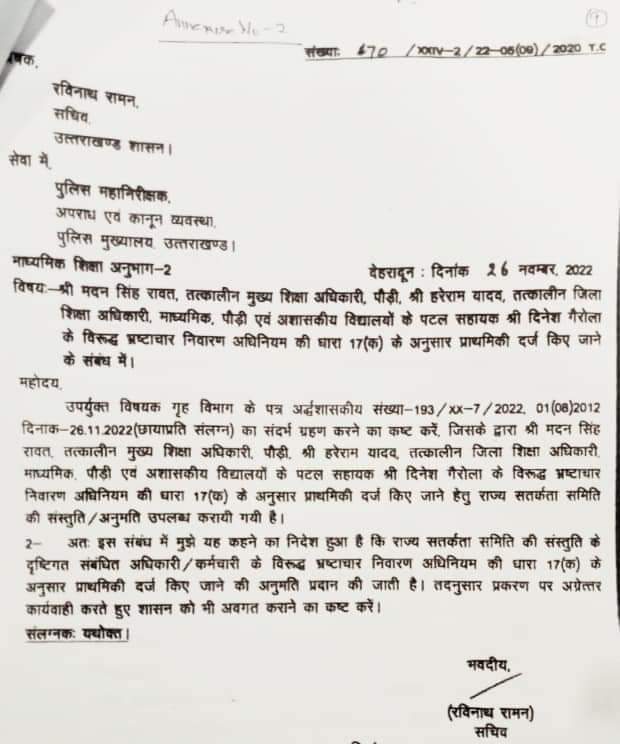 Annexure No-2
9
संख्याः 670 /XXIV-2/22-05(09)/2020 T.C
रविनाथ रामन,
सचिव,
उत्तराखण्ड शासन।
सेवा में,
पुलिस महानिरीक्षक,
अपराध एवं कानून व्यवस्था,
पुलिस मुख्यालय, उत्तराखण्ड।
माध्यमिक शिक्षा अनुभाग-2 देहरादून : दिनांक 26 नवम्बर, 2022
विषयः-श्री मदन सिंह रावत, तत्कालीन मुख्य शिक्षा अधिकारी, पौड़ी, श्री हरेराम यादव, तत्कालीन जिला
शिक्षा अधिकारी, माध्यमिक, पौड़ी एवं अशासकीय विद्यालयों के पटल सहायक श्री दिनेश गैरोला
के विरूद्ध भ्रष्टाचार निवारण अधिनियम की धारा 17(क) के अनुसार प्राथमिकी दर्ज किए जाने
के संबंध में।
महोदय,
उपर्युक्त विषयक गृह विभाग के पत्र अर्द्धशासकीय संख्या-193/xx-7/2022, 01(08)2012
दिनाक-26.11.2022(छायाप्रति संलग्न) का संदर्भ ग्रहण करने का कष्ट करें, जिसके द्वारा श्री मदन सिंह
रावत, तत्कालीन मुख्य शिक्षा अधिकारी, पौड़ी, श्री हरेराम यादव, तत्कालीन जिला शिक्षा अधिकारी,
माध्यमिक, पौड़ी एवं अशासकीय विद्यालयों के पटल सहायक श्री दिनेश गैरोला के विरूद्ध भ्रष्टाचार
निवारण अधिनियम की धारा 17(क) के अनुसार प्राथमिकी दर्ज किए जाने हेतु राज्य सतर्कता समिति
की संस्तुति/अनुमति उपलब्ध करायी गयी है।
2- अतः इस संबंध में मुझे यह कहने का निदेश हुआ है कि राज्य सतर्कता समिति की संस्तुति के
दृष्टिगत संबंधित अधिकारी/कर्मचारी के विरूद्ध भ्रष्टाचार निवारण अधिनियम की धारा 17(क) के
अनुसार प्राथमिकी दर्ज किए जाने की अनुमति प्रदान की जाती है। तदनुसार प्रकरण पर अग्रेत्तर
कार्यवाही करते हुए शासन को भी अवगत कराने का कष्ट करें।
संलग्नकः यथोक्त।
भवदीय,
(रविनाथ रामन)
सचिव